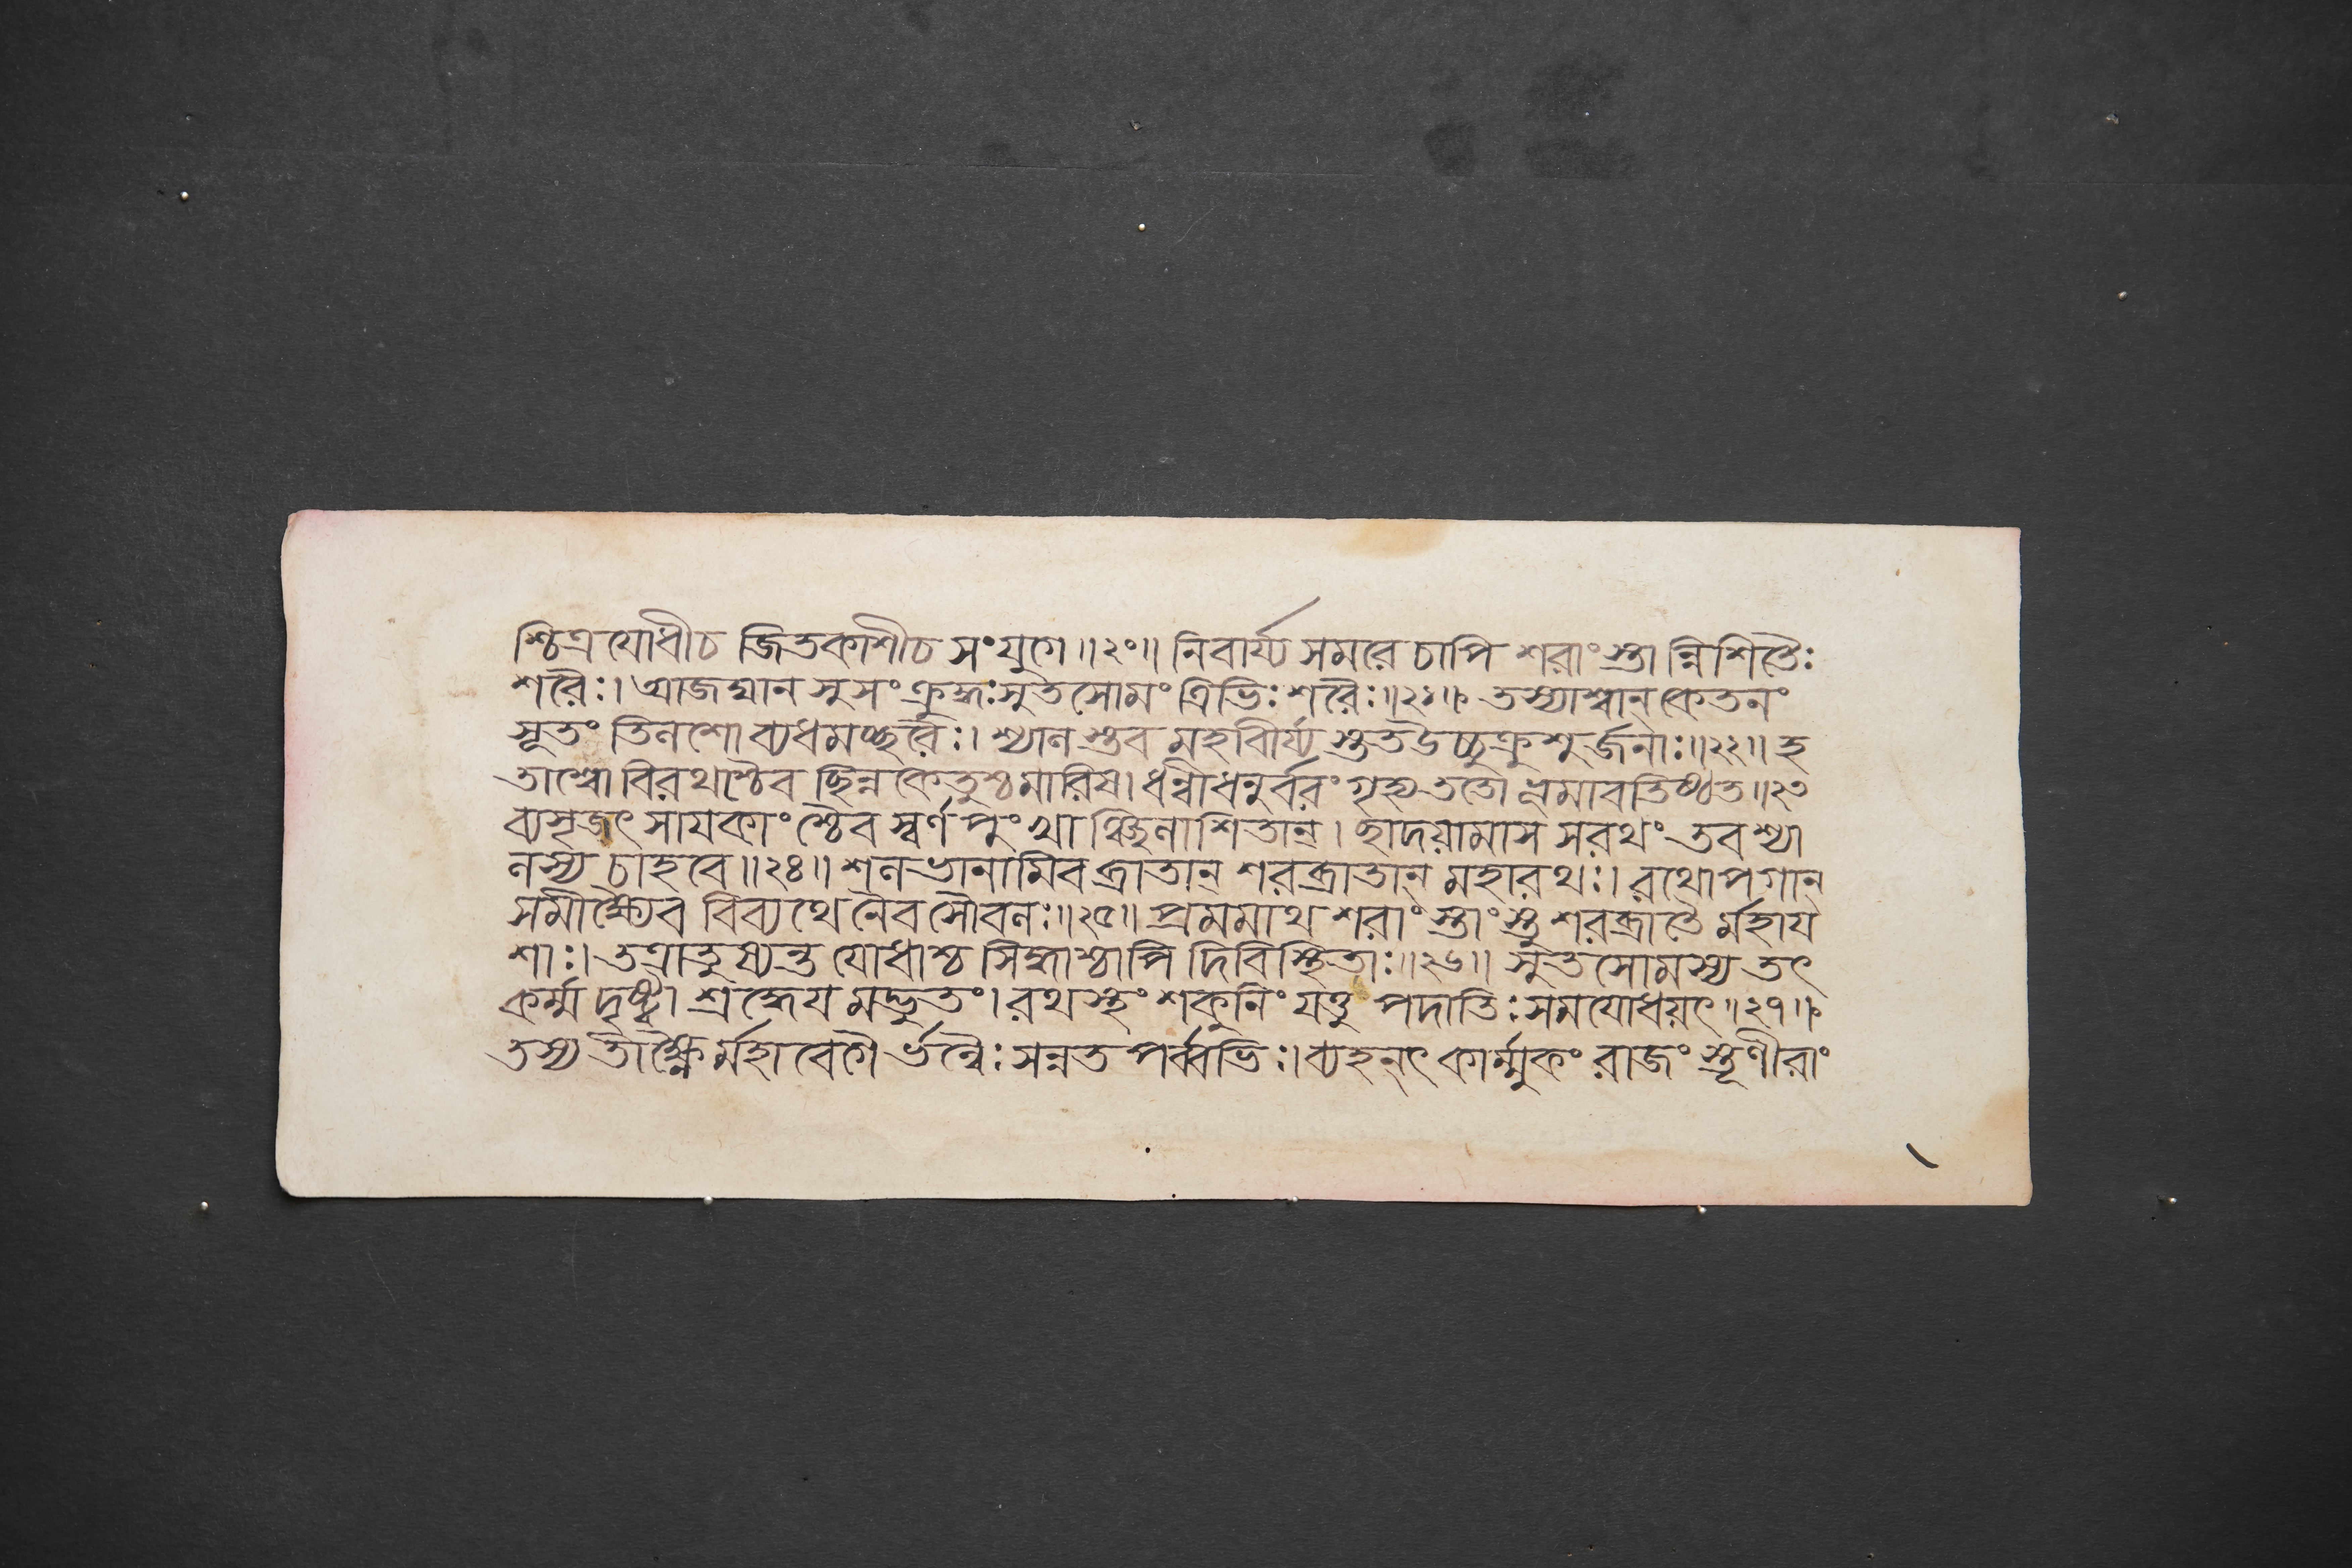 শ্চিত্রযোধীচ জিতকাশীচ সংযুগে॥২০॥ নিবার্য্য সমরে চাপি শরাংস্তা ন্নিশিতৈঃ
শরৈঃ। আজঘান সুসংক্রুদ্ধঃসুতসোমং ত্রিভিঃ শরৈঃ॥২১॥ তস্যাশ্বান্ কেতনং
সূতং তিলশো ব্যধমচ্ছরৈঃ। শ্যাল স্তব মহাবীর্য্য স্তুতউচ্চুক্রুশু র্জনাঃ॥২২॥ হ
তাশ্বো বিরথশ্চৈব ছিন্ন কেতুশ্চমারিষ। ধন্বীধনুর্বরং গৃহ্য ততো ভূমাবতিষ্ঠত॥২৩
ব্যসৃজৎ সায়কাংশ্চৈব স্বর্ণ পুংখা ঞ্ছিলাশিতান্। ছাদয়ামাস সরথং তবশ্যা
লস্য চাহবে॥২৪॥ শলভানামিব ব্রাতান্ শরব্রাতান্ মহারথঃ। রথোপগান্
সমীক্ষ্যৈব বিব্যথে নৈব সৌবলঃ॥২৫॥ প্রমমাথ শরাংস্তাংস্তু শরব্রাতৈ র্মহায
শাঃ। তত্রাতুষ্যন্ত যোধাশ্চ সিদ্ধাশ্চাপি দিবিস্থিতাঃ॥২৬॥ সুতসোমস্য তৎ
কর্ম্ম দৃষ্ট্বা শ্রদ্ধেয় মদ্ভুতং। রথস্থং শকুনিং যস্তু পদাতিঃ সমযোধয়ৎ॥২৭॥
তস্য তীক্ষ্ণৈ র্মহাবেগৈ র্ভল্লৈঃ সন্নত পর্ব্বভিঃ। ব্যহনৎ কার্ম্মুকং রাজং স্তূণীরাং